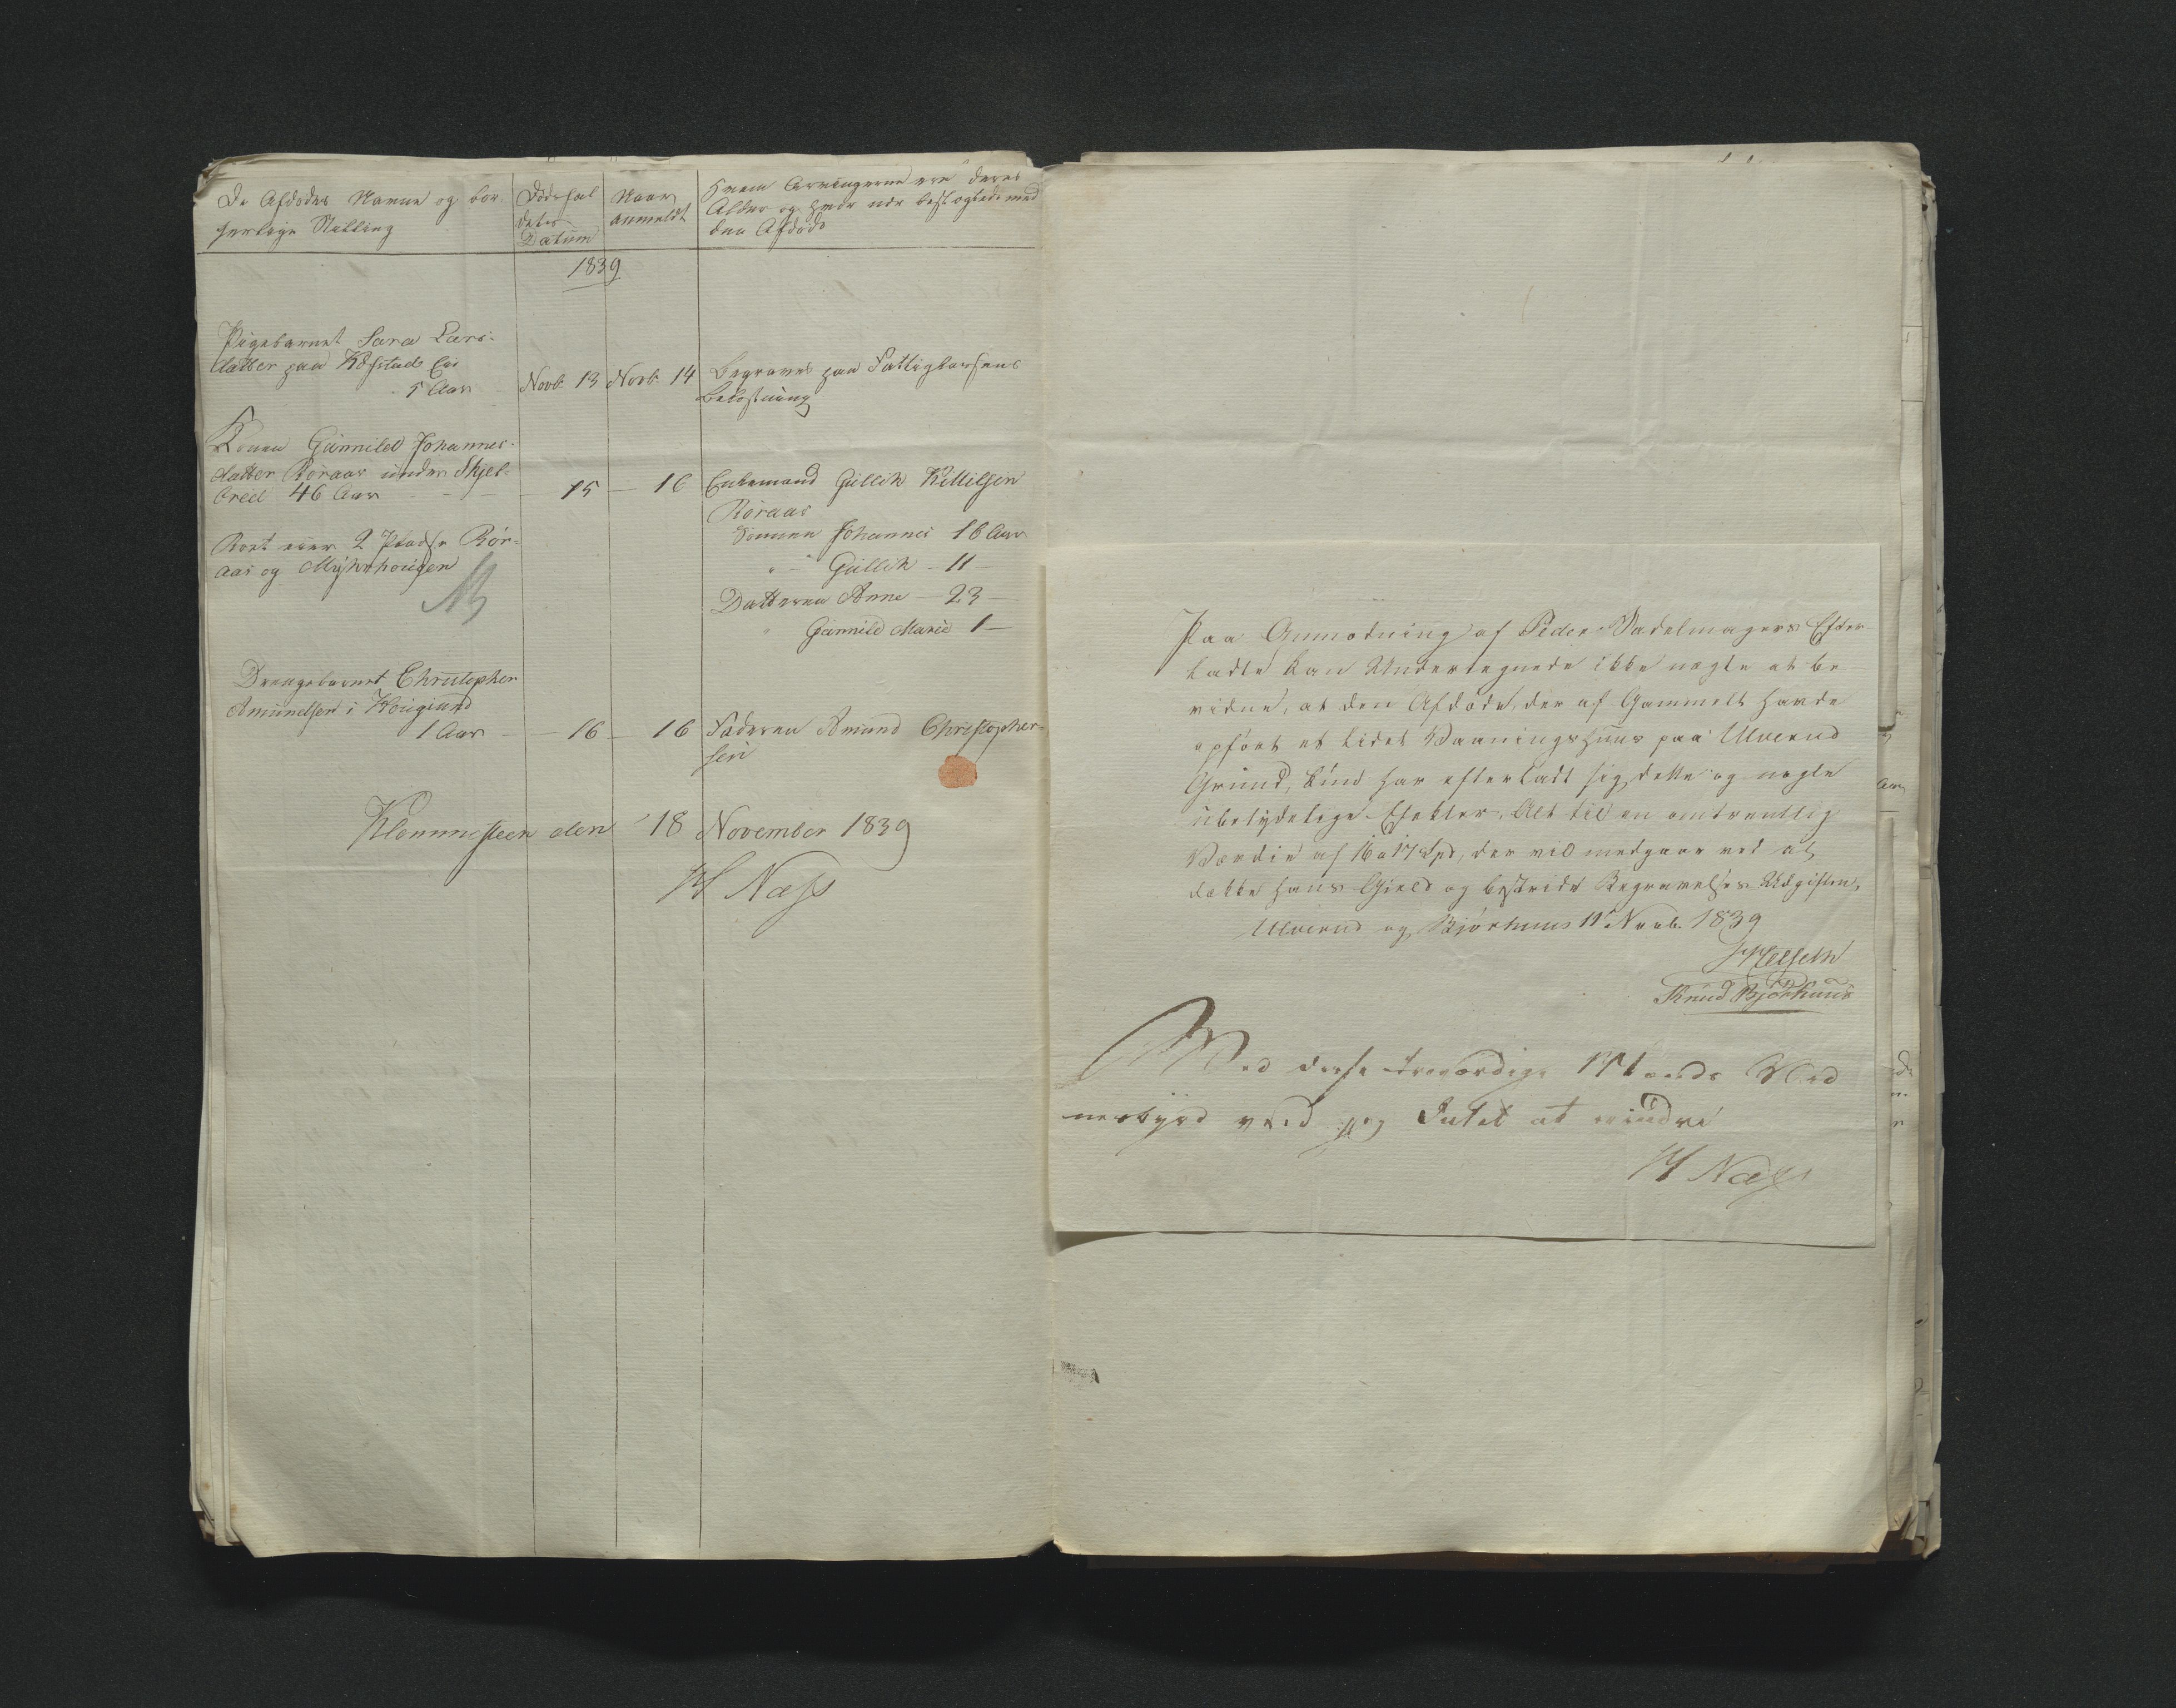 De Afdødes Navne og bor-
gerlige Stilling
Dødsfal
dets
Datum
Naar
anmeldt
Hvem Arvingerne ere deres
Alder og hvor nær beslægtede med
den Afdøde
1839
Pigebarnet Sara Lars-
datter paa Kopstad Eie
5 Aar
Novb. 13 Novb. 14
begraves paa Fattigkassens
bekostning
Konen Gunnild Johannes-
datter Røraas under Skjel-
bred 46 Aar - - -
15 - 16
Enkemand Gullik Kittilsen
Røraas
Sønnen Johannes 16 Aar
" - Gullik - 11 -
Datteren Anne - 23 -
" Gunnild Marie 1 -
Boet eier 2 Pladse Rør-
aas og Myhrhougen
Drengebarnet Christopher
Amundsen i Hougsund
1 Aar - - 16 - 16
Faderen Amund Christopher-
sen
Klommesteen den 18 November 1839
H Næss
Paa Anmodning af Peder Sadelmagers Efter
ladte kan Undertegnede ikke nægte at be
vidne, at den Afdøde, der af Gammelt havde
opført et lidet Vaaningshuus paa Ulverud
Grund, kun har efterladt sig dette og nogle
ubetydelige Effekter, Alt til en omtrentlig
Værdie af 16 a 17 Spd, der vil medgaae ved at
dække hans Gield og bestride Begravelses Udgiften,
Ulverud og Bjørhuus 11 Novb. 1839
Knud Bjørhuus
Mod disse troværdige Mænds Vid
nesbyrd veed jeg Intet at erindre
H Næss